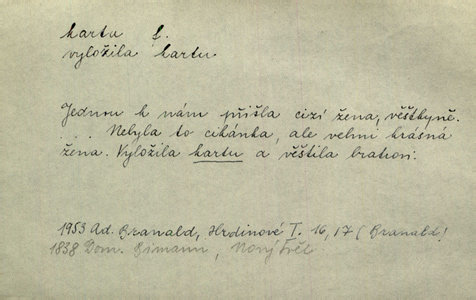 karta f.
vyložila kartu
Jednou k nám přišla cizí žena, věštkyně.
... Nebyla to cikánka, ale velmi krásná
žena. Vyložila kartu a věštila bratrovi.
1953 Ad. Branald, Hrdinové T. 16, 17 (Branald)
1838 Dom. Nový